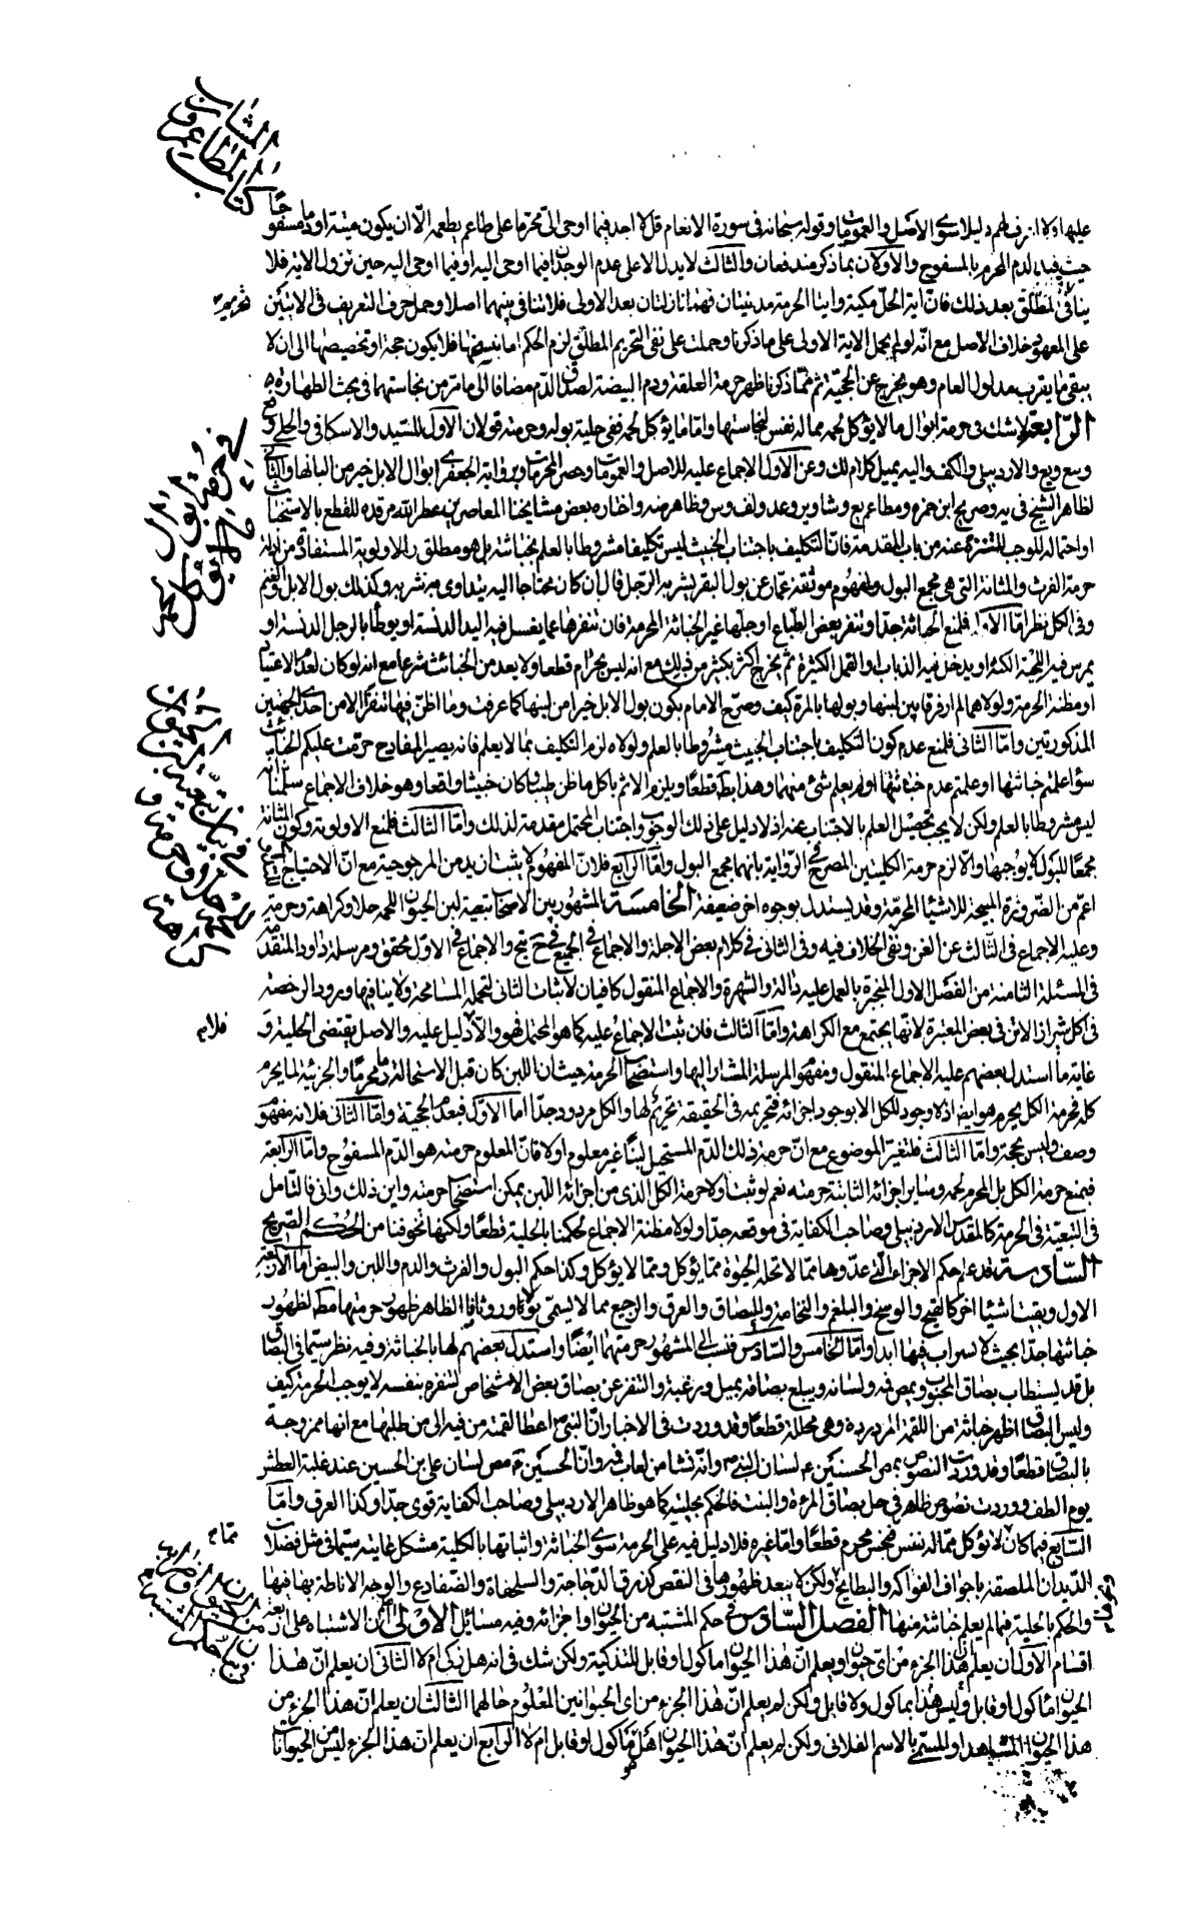 كتاب المطاعم والمشارب
عليها اذ لا نرف لهم دليلا سوى الاصل والعمومات وقوله سبحانه فى سورة الانعام قل لا اجد فيما اوحى الىّ محرّما على طاعم يطعمه الّا ان يكون ميتة او دما مسفوحا
حيث قيد الدم المحرم بالمسفوح والاوّلان بما ذكر مندفعان والثالث لا يدل الا على عدم الوجدان فيما اوحى اليه او فيما اوحى اليه حين نزول الاية فلا
ينافى المطلق بعد ذلك فان اية الحل مكية وايتا الحرمة مدنيتان فهما نازلتان بعد الاولى فلا تنافى بينهما اصلا وحمل حرف التعريف فى الايتين
على المعهود خلاف الاصل مع انّه لو لم يحمل الاية الاولى على ما ذكرنا وحملت على نفى التحريم المطلق لزم الحكم اما بنسخها فلا يكون حجة او تخصيصها الى ان لا
يبقى ما يقرب مدلول العام وهو يخرج عن الحجيّة ثم ممّا ذكرنا ظهر حرمة العلقة ودم البيضة لصدق الدّم مضافا الى ما مرّ من نجاستهما فى بحث الطهارة
الرّابعة لا شك فى حرمة ابوال ما لا يؤكل لحمه مما له نفس لنجاستها وامّا ما يؤكل لحمه ففى حلية بوله وحرمته قولان الاول للسّيد والاسكافى والحلى
ويع ويع والاردبيلى والكف واليه يميل كلام لك وعن الاول الاجماع عليه للاصل والعمومات وحصر المحرمات ورواية الجعفرى ابوال الابل خير من البانها والثانى
لظاهر الشيخ فى يه وصريح ابن حمزه ومطاعم يع وشا وير وعد ولف وس وظاهر ضه واختاره بعض مشايخنا المعاصرين عطر الله مرقده للقطع بالاستخباث
او احتماله الموجب للتنزه عنه من باب المقدمة فان التكليف باجتناب الخبيث ليس تكليفا مشروطا بالعلم بخباثته بل هو مطلق والاولوية المستفادة من ادلة
حرمة الفرث والمثانة التى هى مجمع البول ولمفهوم موثقة عمّار عن بول البقر يشربه الرّجل قال ان كان محتاجا اليه يتداوى به شربه وكذلك بول الابل والغنم
وفى الكل نظر امّا الاول فلمنع الخباثة جدا وتنفر بعض الطّباع او جلّها غير الخباثة المحرمة فان تنفرها عما يغسل فيه اليد الدنسة او يوطأ بالرجل الدنسة او
يمرس فيه اللحية الكثة او يدخل فيه الذباب او القمل الكثيرة ثم يخرج اكثر بكثير من ذلك مع انه ليس بحرام قطعا ولا يعد من الخبائث شرعا مع انه لو كان لعدم الاعتياد
او مظنة الحرمة ولولاهما لم ار فرقا بين لبنها وبولها بالمرة كيف وصرح الامام بكون بول الابل خيرا من لبنها كما عرفت وما اظنّ فيها تنفرا الا من احدى الجهتين
المذكورتين وامّا الثانى فلمنع عدم كون التكليف باجتناب الخبيث مشروطا بالعلم ولولاه لزم التكليف بما لا يعلم فانه يصير المفاد ح حرمت عليكم الخبائث
سواء علمتم خباثتها او علمتم عدم خباثتها او لم يعلم شئ منهما وهذا بط قطعا ويلزم الاثم باكل ما ظن طيبا وكان خبيثا واقعا وهو خلاف الاجماع سلّمنا انّه
ليس مشروطا بالعلم ولكن لا يجب تحصيل العلم بالاجتناب عنه اذ لا دليل على ذلك الوجوب واجتناب المحتمل مقدمة لذلك وامّا الثالث فلمنع الاولوية وكون المثانة
مجمعا للبول لا يوجبها والا لزم حرمة الكليتين المصرح فى الرّواية بانهما مجمع البول وامّا الرّابع فلانّ المفهوم لا يثبت ازيد من المرجوحية مع انّ الاحتياج
اعمّ من الضّرورة المبيحة للاشياء المحرمة وقد يستدل بوجوه اخر ضعيفة الخامسة المشهور بين الاصحاب تبعية لبن الحيوان للحمه حلا وكراهة وحرمة
وعليه الاجماع فى الثالث عن الغن ونفى الخلاف فيه وفى الثانى فى كلام بعض الاجلة والاجماع فى الجميع فى شرح يح والاجماع فى الاوّل محقق ومرسلة داود المتقدمة
فى المسئلة الثامنة من الفصل الاول المنجبرة بالعمل عليه دالة والشهرة والاجماع المنقول كافيان لاثبات الثانى لتحمله المسامحة ولا ينافيها ورود الرخصة
فى اكل شيراز الاتن فى بعض المعتبرة لانها يجتمع مع الكراهة وامّا الثالث فان ثبت الاجماع عليه كما هو المحتمل فهو والّا فلا دليل عليه والاصل يقتضى الحلية و
غاية ما استدل بعضهم عليه الاجماع المنقول ومفهوم المرسلة المشار اليها واستصحاب الحرمة حيث ان اللبن كان قبل الاستحالة دما محرّما والجزئية لما يحرم
كله فحرمة الكل يحرمه هو ايضا اذ لا وجود للكل الا بوجود اجزائه فتحريمه فى الحقيقة تحريم لها والكل مردود جدّا اما الاوّل فبعدم الحجية وامّا الثانى فلانه مفهوم
وصف وليس بحجة وامّا الثالث فلتغيّر الموضوع مع انّ حرمة ذلك الدّم المستحيل لبنا غير معلوم اولا فانّ المعلوم حرمته هو الدّم المسفوح وامّا الرّابعة
فبمنع حرمة الكل بل المحرم لحمه وساير اجزائه الثابتة حرمته نعم لو ثبت اولا حرمة الكل الذى من اجزائه اللبن يمكن استصحاب حرمته واين ذلك واذ فالتامل
فى التبعيّة فى الحرمة كالمقدّس الاردبيلى وصاحب الكفاية فى موقعه جدّا ولولا مظنة الاجماع لحكمنا بالحلية قطعا ولكنها تخوفنا من الحكم الصّريح
السّادسة قد علم حكم الاجزاء الّتى عدّوها ممّا لا تحله الحيوة ممّا يؤكل وممّا لا يؤكل وكذا حكم البول والفرث والدم واللبن والبيض امّا الاربعة
الاول وبقيت اشياء اخر كالقيح والوسخ والبلغم والنخامة والبصاق والعرق والرجيع مما لا يسمّى بولا وروثا فالظاهر ظهور حرمتها مط لظهور
خباثتها جدّا بحيث لا يستراب فيها ابدا وامّا الخامس والسّادس فنسب الى المشهور حرمتهما ايضا واستدل بعضهم لها بالخباثة وفيه نظر سيّما فى البصاق
بل قد يستطاب بصاق المحبوب ويمص فيه ولسانه ويبلع بصاقه بميل ورغبة والتنفر عن بصاق بعض الاشخاص لتنفره بنفسه لا يوجب الحرمة كيف
وليس البصاق اظهر خباثة من اللقمة المزدردة وهى محللة قطعا وقد وردت فى الاخبار انّ النبى ص اعطى القمة من فيه الى من طلبها مع انها ممزوجة
بالبصاق قطعا وقد وردت النصوص بمص الحسنين ع لسان النبى ص وانّه نشأ من لعاب فيه وانّ الحسين ع مص لسان على بن الحسين عند غلبة العطش
يوم الطف ووردت نصوص ظاهرة فى حل بصاق المرءة والبنت فالحكم بحليته كما هو ظاهر الاردبيلى وصاحب الكفاية قوى جدّا وكذا العرق وامّا
السّابع فما كان لا يؤكل ممّا له نفس فنجس محرم قطعا وامّا غيره فلا دليل فيه على الحرمة سوى الخباثة واثباتها بالكلية مشكل غايته سيّما فى مثل فضلات
الدّيدان الملصقة باجواف الفواكه والبطايخ ولكن لا يبعد ظهورها فى البعض كذرق الدّجاجة والسلحفاة والضفادع والوجه الاناطة بها فيها
والحكم بالحلية فيما لم يعلم خباثته منها الفصل السّادس فى حكم المشتبه من الحيوان او اجزائه وفيه مسائل الاولى انّ الاشتباه على اربعة
اقسام الاوّل ان يعلم انّ هذا الجزء من اى حيوان ويعلم انّ هذا الحيوان مما كول او قابل للتذكية ولكن شك فى انه هل ذكى ام لا الثانى ان يعلم انّ هذا
الحيوان ماكول او قابل وليس هذا بماكول ولا قابل ولكن لم يعلم انّ هذا الجزء من اى الحيوانين المعلوم حالهما الثالث ان يعلم انّ هذا الجزء من
هذا الحيوان المشاهد او المسمّى بالاسم الفلانى ولكن لم يعلم انّ هذا الحيوان اهل ما كول او قابل ام لا الرّابع ان يعلم ان هذا الجزء ليس من الحيوانات
تحريمه
فى حرمة ابوال
ما لا يؤكل
لحمه
فى تبعية
اللبن للحم
حلا وحرمة و
كراهة
فلا يم
تمام
هو